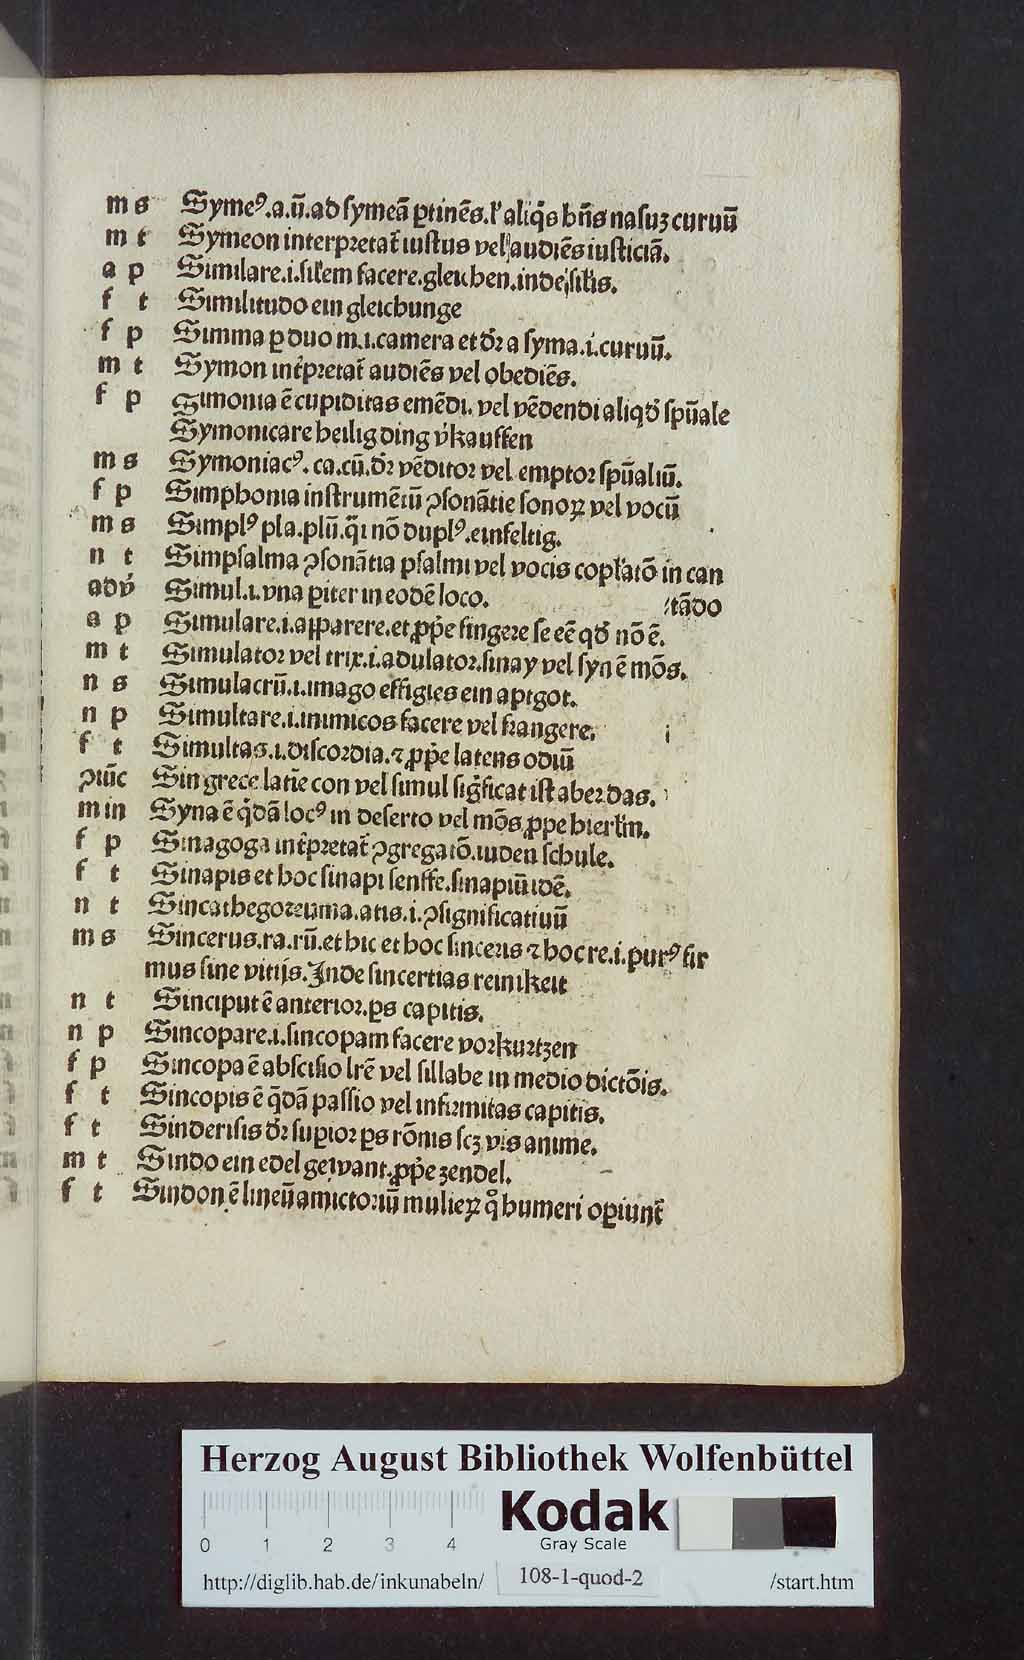 m s Symeꝰ.a.ū.ad ſymeā ꝑtinēs.ł aliq̄s bn̄s naſuʒ curuū
m t Symeon interpꝛetat̄ iuſtus vel audiēs iuſticiā.
a p Similare.i.ſiłem facere.gleichen.inde ſiłis.
f t Similitudo ein gleichunge
f p Simma ꝑ duo m.i.camera et dꝛ̄ a ſyma.i.curuū.
m t Symon int̄pꝛetat̄ audiēs vel obediēs.
f p Simonia ē cupiditas emēdi. vel vēdendi aliqd̄ ſpūale
Symonicare heilig ding v̓kauffen
m s Symoniacꝰ. ca.cū.dꝛ̄ vēditoꝛ vel emptoꝛ ſpūaliū.
f p Simphonia inſtrumētū ꝯſonātie ſonoꝝ vel vocū
m s Simplꝰ pla.plū.q̄i nō duplꝰ.einfeltig.
n t Simpſalma ꝯſonātia pſalmi vel vocis copłatō in can
adv̓ Simul.i.vna ꝑiter in eodē loco. tādo
a p Simulare.i.apparere.et ꝓpē fingere ſe eē qd̄ nō ē.
m t Simulatoꝛ vel trix.i.adulatoꝛ.ſinay vel ſyn ē mōs.
n s Simulacrū.i.imago effigies ein aptgot.
n p Simultare.i.inimicos facere vel frangere.
f t Simultas.i.diſcoꝛdia.⁊ ꝓpē latens odiū
ꝯiūc Sin grece latīe con vel ſimul ſiḡficat iſt aber das.
m in Syna ē q̄dā locꝰ in deſerto vel mōs ꝓpe hierłm.
f p Sinagoga int̄pꝛetat̄ ꝯgregatō.iuden ſchule.
f t Sinapis et hoc ſinapi ſenffe.ſinapiū idē.
n t Sincathegoꝛeuma.atis.i.ꝯſignificatiuū
m s Sincerus.ra.rū.et hic et hoc ſinceris ⁊ hoc re.i.purꝰ fir
mus ſine vitijs.Inde ſincertias reinikeit
n t Sinciput ē anterioꝛ.ꝑs capitis.
n p Sincopare.i.ſincopam facere voꝛkurtzen
f p Sincopa ē abſciſio lrē vel ſillabe in medio dictōis.
f t Sincopis ē q̄dā paſſio vel infirmitas capitis.
f t Sinderiſis dꝛ̄ ſuꝑioꝛ ꝑs rōnis ſcʒ vis anime.
m t Sindo ein edel gewant.ꝓpē zendel.
f t Sindon ē lineū amictoꝛiū mulieꝝ qͦ humeri oꝑiunt̄
Herzog August Bibliothek Wolfenbüttel
Kodak
Gray Scale
0 1 2 3 4
http://diglib.hab.de/inkunabeln/ 108-1-quod-2 /start.htm